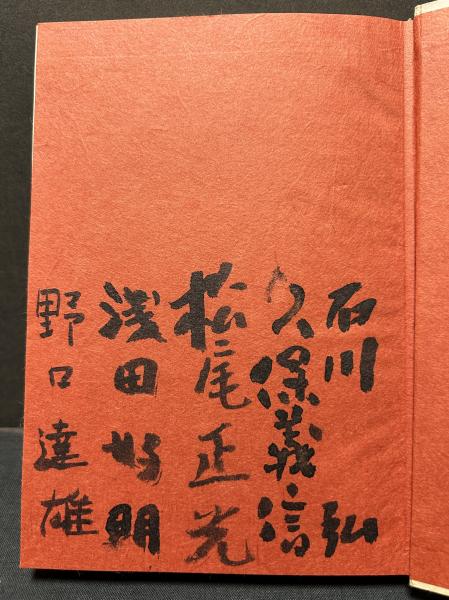 石川 弘
久保義信
松尾正光
浅田好明
野口達雄